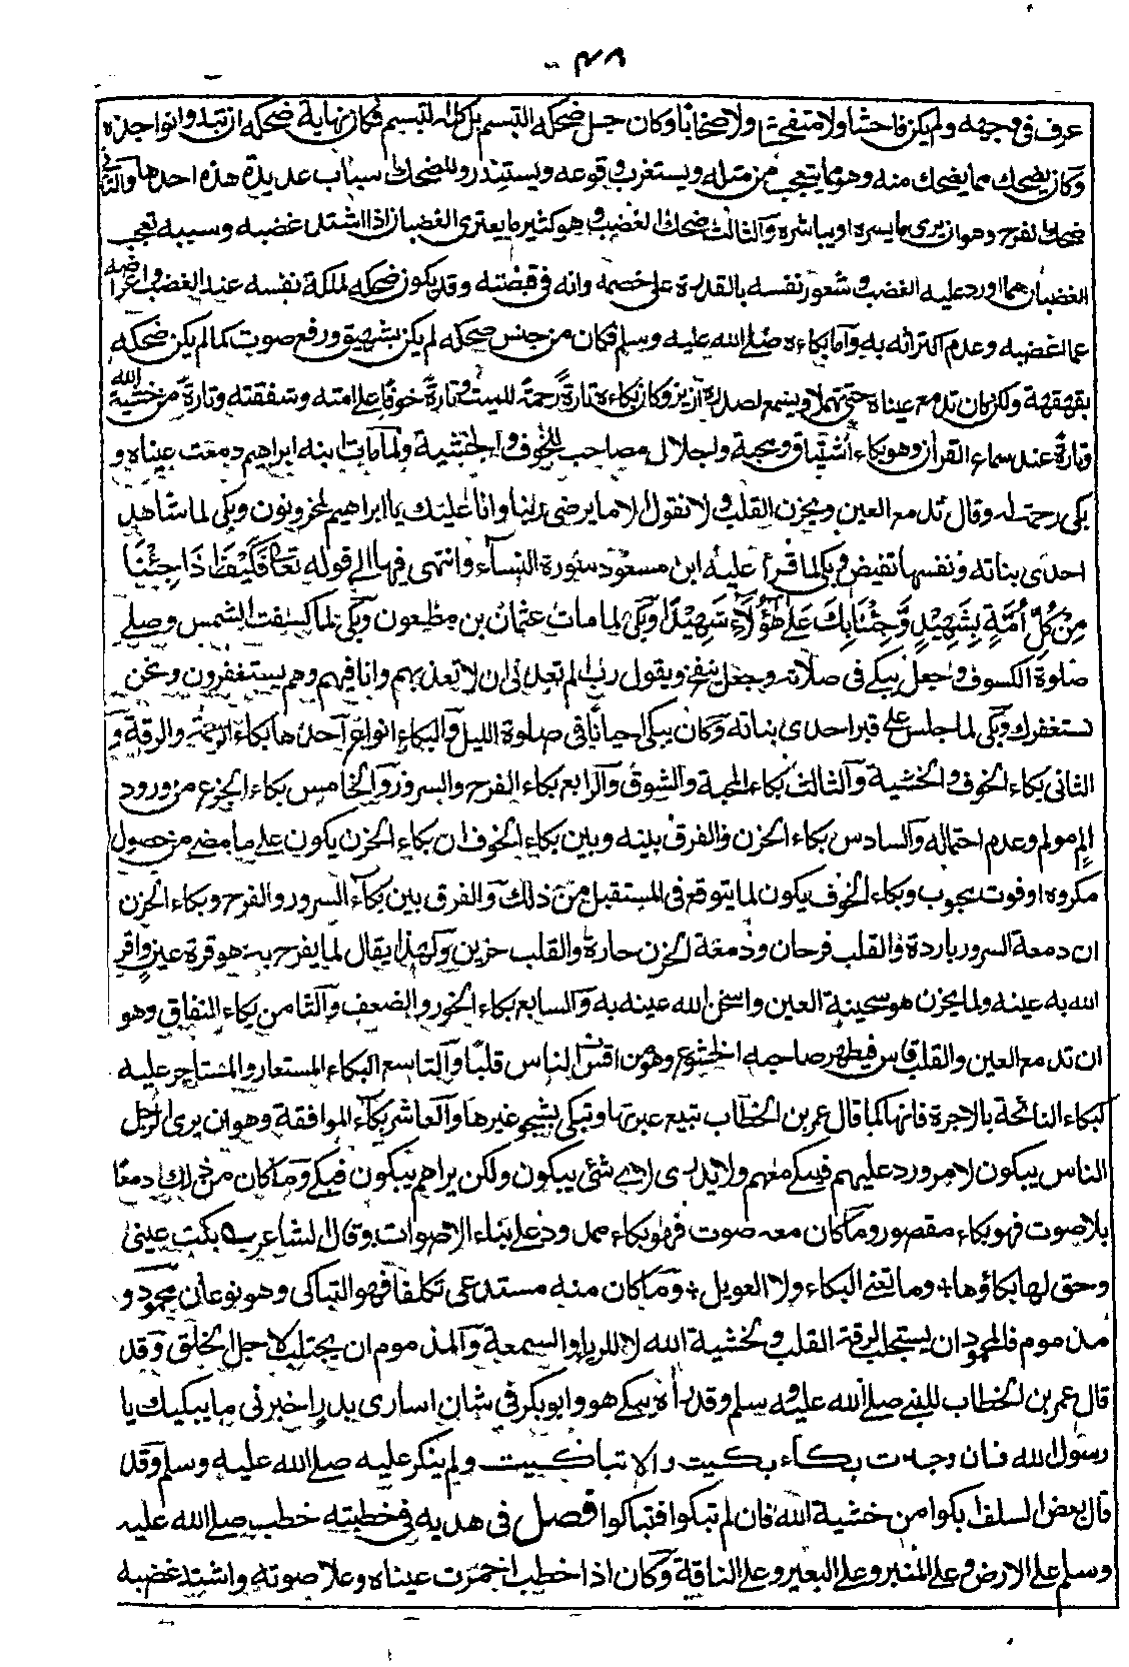 ٤٨
عرف في وجهه ولم يكن فاحشا ولا متفحشا ولا صخابا وكان جل ضحكه التبسم بل كله التبسم فكان نهاية ضحكه ان تبدو نواجذه
وكان يضحك مما يضحك منه وهو مما يتعجب من مثله ويستغرب وقوعه ويستندر وللضحك اسباب عديدة هذه احدها والثاني
ضحك الفرح وهو ان يرى ما يسره او يباشره والثالث ضحك الغضب وهو كثير ما يعتري الغضبان اذا اشتد غضبه وسببه تعجب
الغضبان مما اورد عليه الغضب وشعور نفسه بالقدرة على خصمه وانه في قبضته وقد يكون ضحكه لملكه نفسه عند الغضب واعراضه
عما اغضبه وعدم اكتراثه به واما بكاءه صلى الله عليه وسلم فكان من جنس ضحكه لم يكن بشهيق ورفع صوت كما لم يكن ضحكه
بقهقهة ولكن كان تدمع عيناه حتى تهملا ويسمع لصدره ازيز وكان بكاءه تارة رحمة للميت وتارة خوفا على امته وشفقته وتارة من خشية الله
وتارة عند سماع القرآن وهو بكاء اشتياق ومحبة واجلال مصاحب للخوف والخشية ولما مات ابنه ابراهيم دمعت عيناه و
بكى رحمة له وقال تدمع العين ويحزن القلب ولا نقول الا ما يرضى ربنا وانا عليك يا ابراهيم لمحزونون وبكى لما شاهد
احدى بناته ونفسها تفيض وبكى لما قرأ عليه ابن مسعود سورة النسآء وانتهى فيها الى قوله تعالى فَكَيْفَ اِذَا جِئْنَا
مِنْ كُلِّ اُمَّةٍ بِشَهِيْدٍ وَّجِئْنَا بِكَ عَلٰى هٰٓؤُلَآءِ شَهِيْدًا وبكى لما مات عثمان بن مظعون وبكى لما كسفت الشمس وصلى
صلوة الكسوف وجعل يبكي في صلاته وجعل ينفخ ويقول رب الم تعدني ان لا تعذبهم وانا فيهم وهم يستغفرون ونحن
نستغفرك وبكى لما جلس على قبر احدى بناته وكان يبكي احيانا في صلوة الليل والبكاء انواع احدها بكاء الرحمة والرقة و
الثاني بكاء الخوف والخشية والثالث بكاء المحبة والشوق والرابع بكاء الفرح والسرور والخامس بكاء الجزع من ورود
الم مولم وعدم احتماله والسادس بكاء الحزن والفرق بينه وبين بكاء الخوف ان بكاء الحزن يكون على ما مضى من حصول
مكروه او فوت محبوب وبكاء الخوف يكون لما يتوقع في المستقبل من ذلك والفرق بين بكاء السرور والفرح وبكاء الحزن
ان دمعة السرور باردة والقلب فرحان ودمعة الحزن حارة والقلب حزين ولهذا يقال لما يفرح به هو قرة عين واقر
الله به عينه ولما يحزن هو سخينة العين واسخن الله عينه به والسابع بكاء الخور والضعف والثامن بكاء النفاق وهو
ان تدمع العين والقلب قاس فيظهر صاحبه الخشوع وهو من اقسى الناس قلبا والتاسع البكاء المستعار والمستاجر عليه
كبكاء النائحة بالاجرة فانها كما قال عمر بن الخطاب تبيع عبرتها وتبكي بشجو غيرها والعاشر بكاء الموافقة وهو ان يرى الرجل
الناس يبكون لامر ورد عليهم فيبكي معهم ولا يدرى لاي شئ يبكون ولكن يراهم يبكون فيبكي وما كان من ذلك دمعا
بلا صوت فهو بكاء مقصور وما كان معه صوت فهو بكاء ممدود على بناء الاصوات وقال الشاعر بكت عيني
وحق لها بكاؤها + وما يغني البكاء ولا العويل + وما كان منه مستدعى تكلفا فهو التباكي وهو نوعان محمود و
مذموم فالمحمود ان يستجلب لرقة القلب ولخشية الله لا للرياء والسمعة والمذموم ان يجتلب لاجل الخلق وقد
قال عمر بن الخطاب للنبي صلى الله عليه وسلم وقد رأه يبكي هو وابو بكر في شان اسارى بدر اخبرني ما يبكيك يا
رسول الله فان وجدت بكاء بكيت والا تباكيت ولم ينكر عليه صلى الله عليه وسلم وقد
قال بعض السلف ابكوا من خشية الله فان لم تبكوا فتباكوا فصل في هديه في خطبته خطب صلى الله عليه
وسلم على الارض وعلى المنبر وعلى البعير وعلى الناقة وكان اذا خطب احمرت عيناه وعلا صوته واشتد غضبه